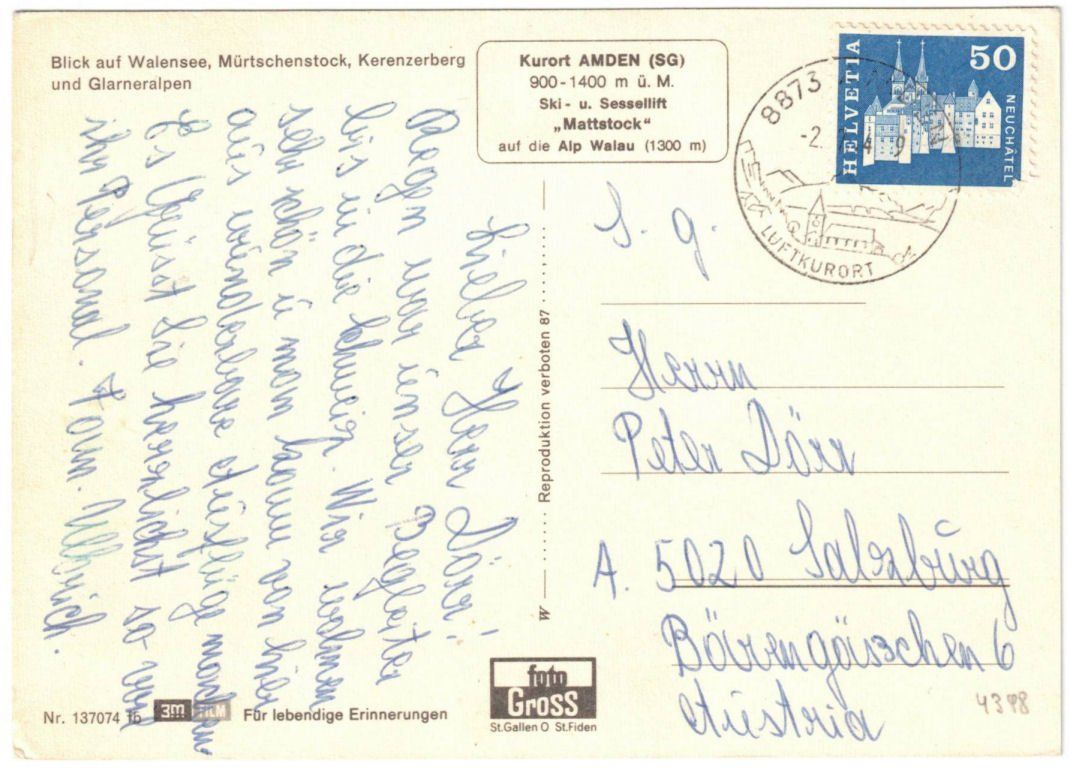 Blick auf Walensee, Mürtschenstock, Kerenzerberg
und Glarneralpen
Kurort AMDEN (SG)
900-1400 m ü. M.
Ski- u. Sessellift
„Mattstock"
auf die Alp Walau (1300 m)
Lieber Herr Dörr!
Regen war unser Begleiter
bis in die Schweiz. Wir wohnen
sehr schön u man kann von hier
aus wunderbare Ausflüge machen
Es Grüsst Sie herzlichst so wie
ihr Personal. Fam. Ulbrich.
Nr. 137074 1b 3M FILM Für lebendige Erinnerungen
W Reproduktion verboten 87
foto
Gross
St.Gallen O St.Fiden
HELVETIA
50
NEUCHÂTEL
8873
-2.
LUFTKURORT
S. g.
Herrn
Peter Dörr
A. 5020 Salzburg
Bärengässchen 6
Austria
4398